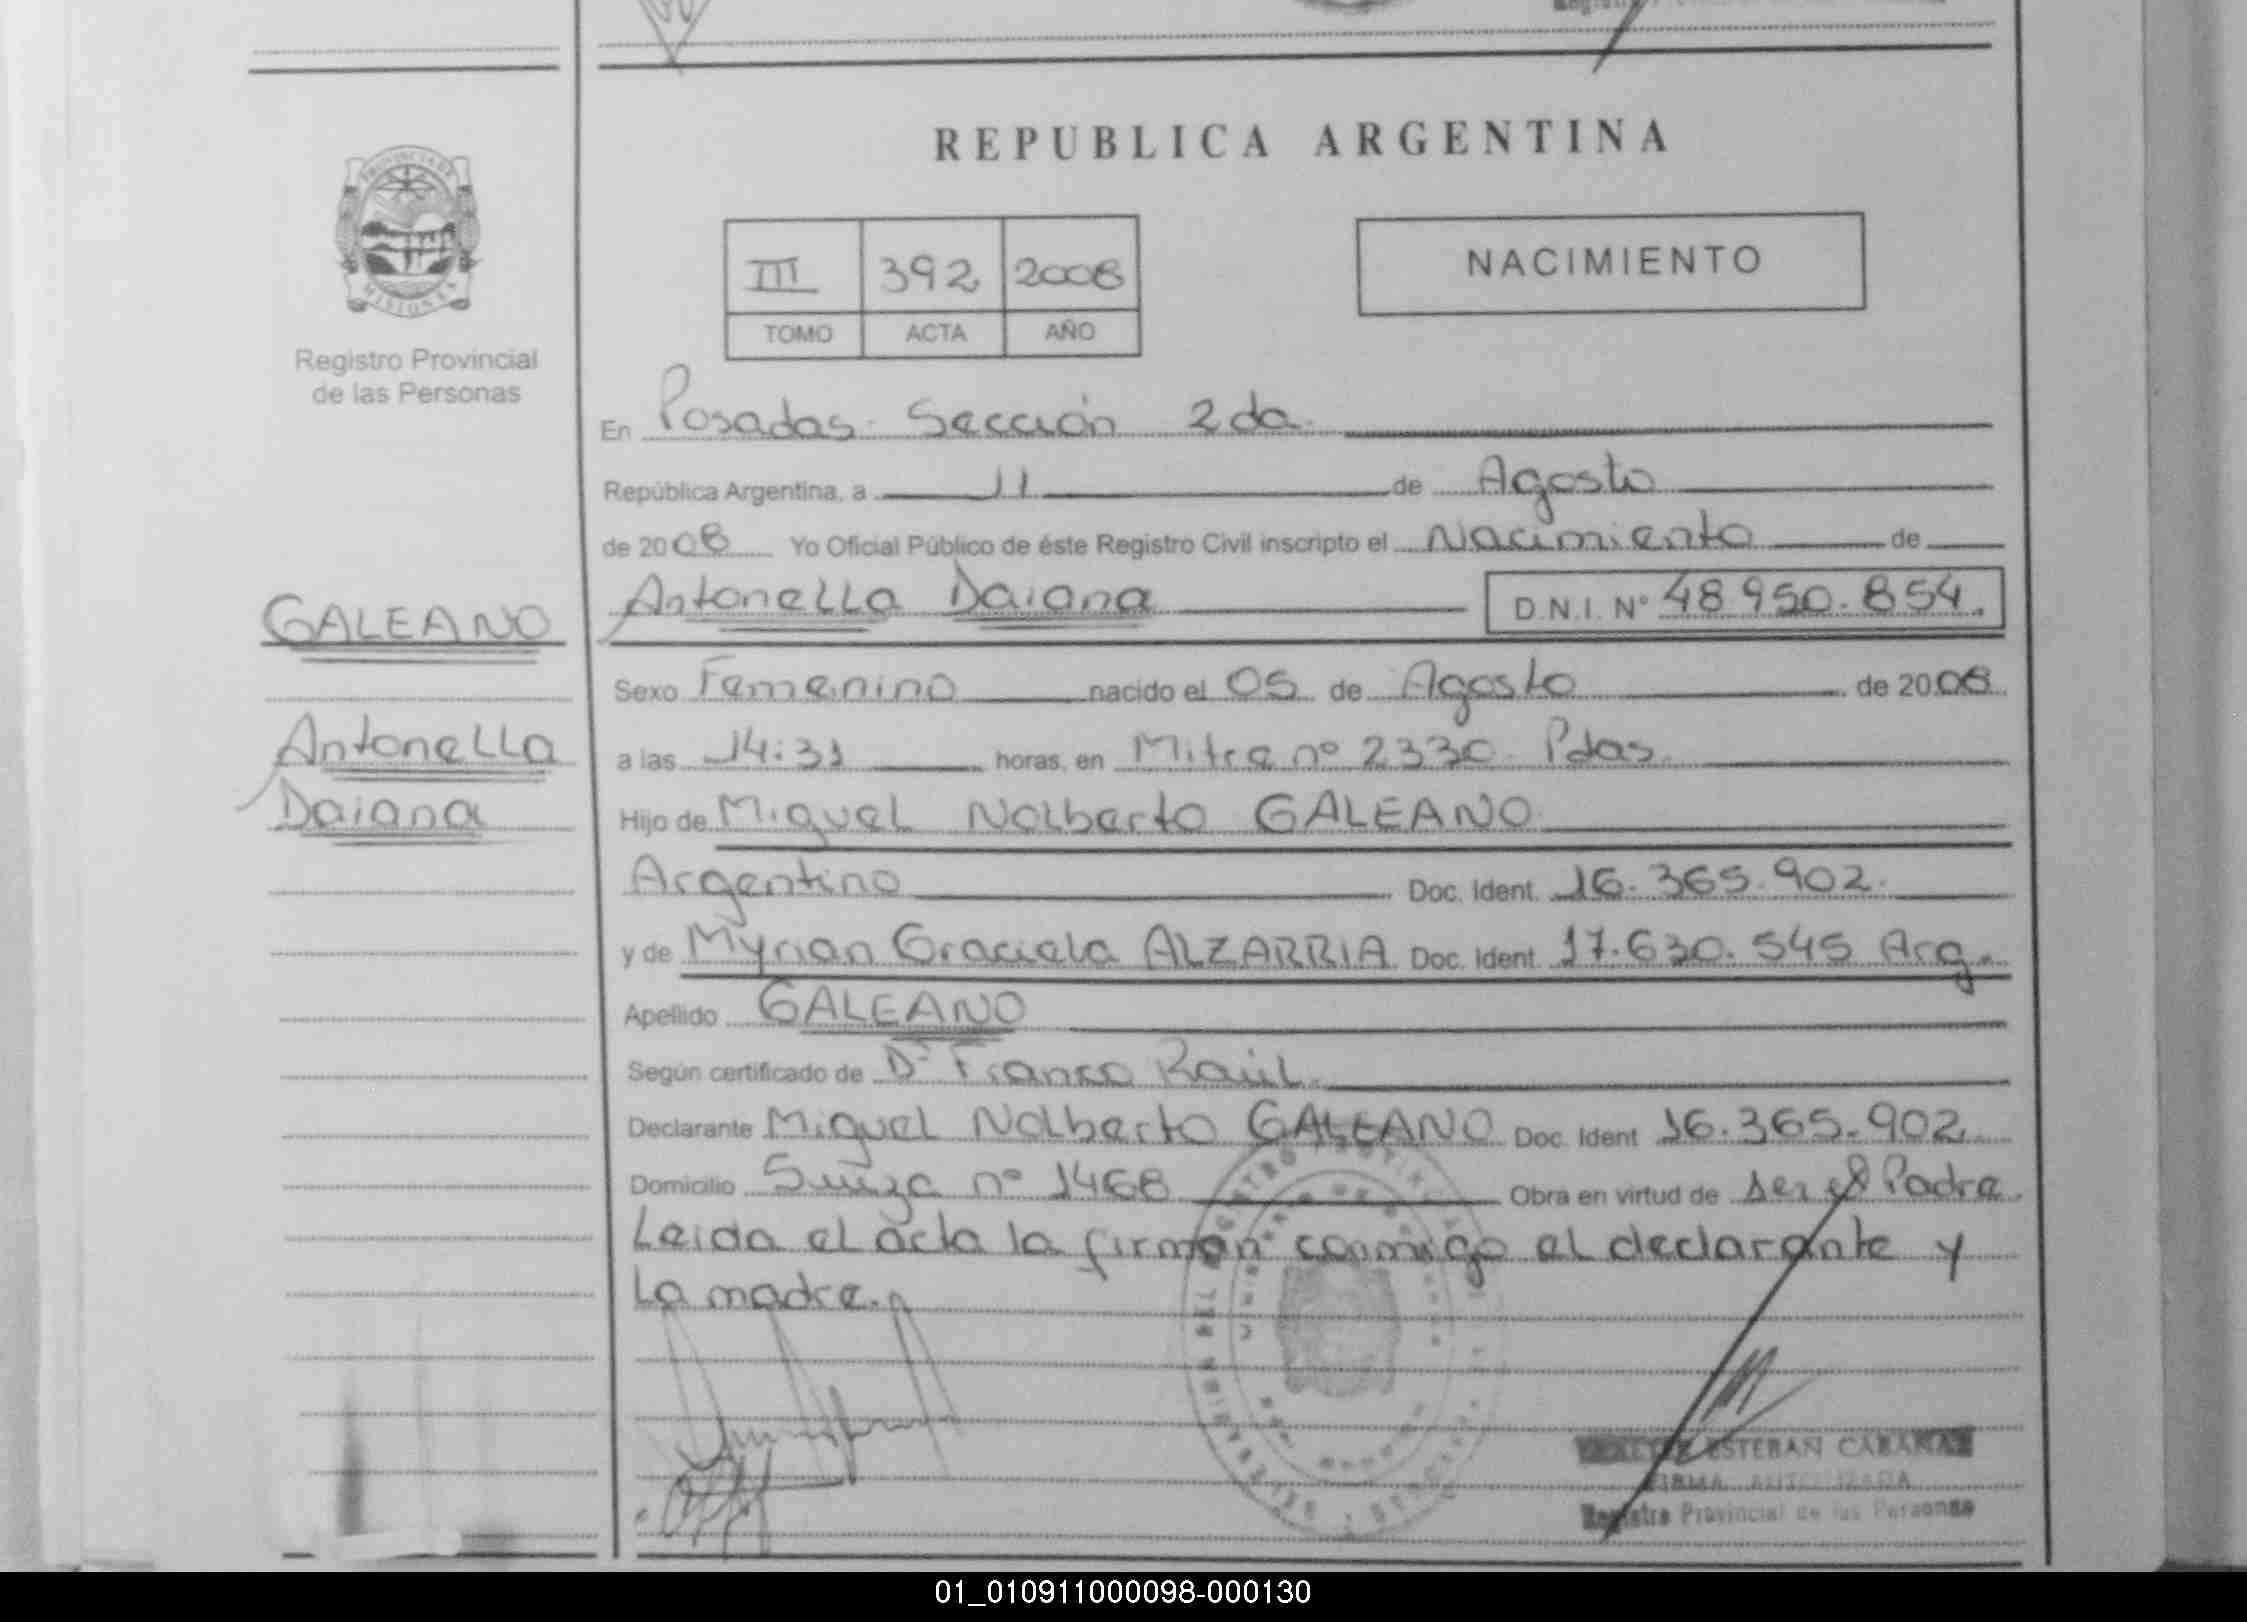 REPUBLICA ARGENTINA
PROVINCIA DE
MISIONES
Registro Provincial
de las Personas
III 392 2008
TOMO ACTA AÑO
NACIMIENTO
En Posadas. Sección 2da.
República Argentina, a 11 de Agosto
de 2008 Yo Oficial Público de éste Registro Civil inscripto el Nacimiento de
GALEANO
Antonella Daiana D.N.I. Nº 48950.854.
Sexo Femenino nacido el 05 de Agosto de 2008
Antonella
a las 14:31 horas, en Mitre nº 2330. Pdas.
Daiana
Hijo de Miguel Nolberto GALEANO
Argentino Doc. Ident. 16.365.902.
y de Myrian Graciela ALZARRIA Doc. Ident 17.630.545 Arg.
Apellido GALEANO
Según certificado de Dr Franco Raúl.
Declarante Miguel Nolberto GALEANO Doc. Ident 16.365.902
Domicilio Suiza nº 1468 Obra en virtud de ser el Padre
Leida el acta la firman conmigo el declarante y
la madre.
ESTEBAN
FIRMA AUTORIZADA
Registro Provincial de las Personas
01_010911000098-000130